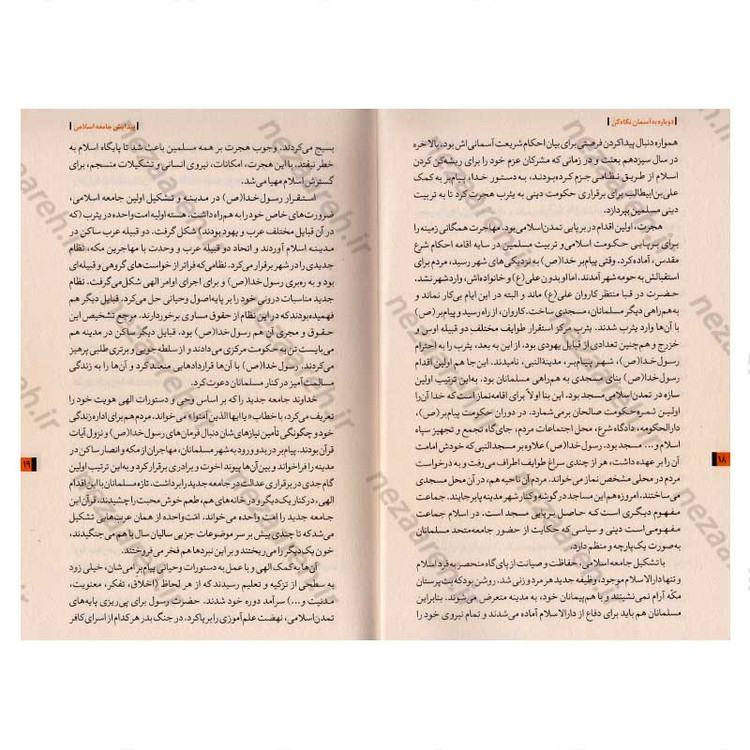 دوباره به آسمان نگاه کن
همواره دنبال پیدا کردن فرصتی برای بیان احکام شریعت آسمانی‌اش بود. بالاخره
در سال سیزدهم بعثت و در زمانی که مشرکان عزم خود را برای ریشه‌کن کردن
اسلام از طریق نظامی جزم کرده بودند، به دستور خدا، پیامبر به کمک
علی‌بن‌ابیطالب برای برقراری حکومت دینی به یثرب هجرت کرد تا به تربیت
دینی مسلمین بپردازد.
هجرت، اولین اقدام در برپایی تمدن اسلامی بود. مهاجرت همگانی زمینه را
برای برپایی حکومت اسلامی و تربیت مسلمین در سایه اقامه احکام شرع
مقدس، آماده کرد. وقتی پیامبر خدا(ص) به نزدیکی‌های شهر رسید، مردم برای
استقبالش به حومه شهر آمدند. اما او بدون علی(ع) و خانواده‌اش، وارد شهر نشد.
حضرت در قبا منتظر کاروان علی(ع) ماند و البته در این ایام بی‌کار نماند و
به همراهی دیگر مسلمانان، مسجدی ساخت. کاروان، از راه رسید و پیامبر(ص)
با آن‌ها وارد یثرب شدند. یثرب مرکز استقرار طوایف مختلف دو قبیله اوس و
خزرج و هم‌چنین تعدادی از قبایل یهودی بود. از این به بعد، یثرب را به احترام
رسول خدا(ص)، شهر پیامبر، مدینة‌النبی، نامیدند. این‌جا هم اولین اقدام
رسول خدا(ص) بنای مسجدی به همراهی مسلمانان بود. به این ترتیب اولین
سازه در تمدن اسلامی مسجد بود. این بنا اولاً برای اقامه نماز است که خدا آن را
اولین ثمره حکومت صالحان برمی‌شمارد. در دوران حکومت پیامبر(ص)،
دارالحکومه، دادگاه شرع، محل اجتماعات مردم، جای‌گاه تجمع و تجهیز سپاه
اسلام و... مسجد بود. رسول خدا(ص) علاوه بر مسجد النبی که خودش امامت
آن را برعهده داشت، هر از چندی سراغ طوایف اطراف می‌رفت و به درخواست
مردم در محلی مشخص نماز می‌خواند. مردم آن ناحیه هم، در آن محل مسجدی
می‌ساختند. امروزه هم این مساجد در گوشه و کنار شهر مدینه پابرجایند. جماعت
مفهوم دیگری است که حاصل برپایی مسجد است. در اسلام جماعت
مفهومی است دینی و سیاسی که حکایت از حضور جامعه متحد مسلمانان
به صورت یک‌پارچه و منظم دارد.
با تشکیل جامعه اسلامی، حفاظت و صیانت از پای‌گاه منحصر به فرد اسلام
و تنها دارالاسلام موجود، وظیفه جدید هر مرد و زنی شد. روشن بود که بت‌پرستان
مکه آرام نمی‌نشینند و با هم‌پیمانان خود، به مدینه متعرض می‌شوند. بنابراین
مسلمانان هم باید برای دفاع از دارالاسلام آماده می‌شدند و تمام نیروی خود را
۱۸
پیدایش جامعه اسلامی
بسیج می‌کردند. وجوب هجرت بر همه مسلمین باعث شد تا پایگاه اسلام به
خطر نیفتد. با این هجرت، امکانات، نیروی انسانی و تشکیلات منسجم، برای
گسترش اسلام مهیا می‌شد.
استقرار رسول خدا(ص) در مدینه و تشکیل اولین جامعه اسلامی،
ضرورت‌های خاص خود را به همراه داشت. هسته اولیه امت واحده در یثرب (که
در آن قبایل مختلف عرب و یهود بودند) شکل گرفت. دو قبیله عرب ساکن در
مدینه اسلام آوردند و اتحاد دو قبیله عرب و وحدت با مهاجرین مکه، نظام
جدیدی را در شهر برقرار می‌کرد. نظامی که فراتر از خواست‌های گروهی و قبیله‌ای
بود و به رهبری رسول خدا(ص) و برای اجرای اوامر الهی شکل می‌گرفت. نظام
جدید مناسبات درونی خود را بر پایه اصول وحیانی حل می‌کرد. قبایل دیگر هم
فهمیده بودند که در این نظام از حقوق مساوی برخوردارند. مرجع تشخیص این
حقوق و مجری آن هم رسول خدا(ص) بود. قبایل دیگر ساکن در مدینه هم
می‌بایست تن به حکومت مرکزی می‌دادند و از سلطه‌جویی و برتری طلبی پرهیز
می‌کردند. رسول خدا(ص) با آن‌ها قراردادهایی منعقد کرد و آن‌ها را به زندگی
مسالمت‌آمیز در کنار مسلمانان دعوت کرد.
خداوند جامعه جدید را که بر اساس وحی و دستورات الهی هویت خود را
تعریف می‌کرد، با خطاب «یا ایها الذین آمنوا» می‌خواند. مردم هم برای اداره زندگی
خود و چگونگی تأمین نیازهای‌شان دنبال فرمان‌های رسول خدا(ص) و نزول آیات
قرآن بودند. پیامبر در بدو ورود به شهر مسلمانان، مهاجران از مکه و انصار ساکن در
مدینه را فراخواند و بین آن‌ها پیوند اخوت و برادری برقرار کرد و به این ترتیب اولین
گام جدی در برقراری عدالت در جامعه جدید را برداشت. تازه مسلمانان با این اقدام
الهی، در کنار یک‌دیگر و در خانه‌های هم، طعم خوش محبت را چشیدند. قرآن این
جامعه جدید را امت واحده می‌خواند. امت واحده از همان عرب‌هایی تشکیل
می‌شد که تا چندی پیش بر سر موضوعات جزیی سالیان سال با هم می‌جنگیدند،
خون یک‌دیگر را می‌ریختند و بر این نبردها هم فخر می‌فروختند.
آن‌ها به کمک الهی و با عمل به دستورات وحیانی پیامبرامی‌شان، خیلی زود
به سطحی از تزکیه و تعلیم رسیدند که از هر لحاظ (اخلاق، تفکر، معنویت،
مدنیت و...) سرآمد دوره خود شدند. حضرت رسول برای پی‌ریزی پایه‌های
تمدن اسلامی، نهضت علم‌آموزی را برپا کرد. در جنگ بدر هر کدام از اسرای کافر
۱۹
nezaareh.ir